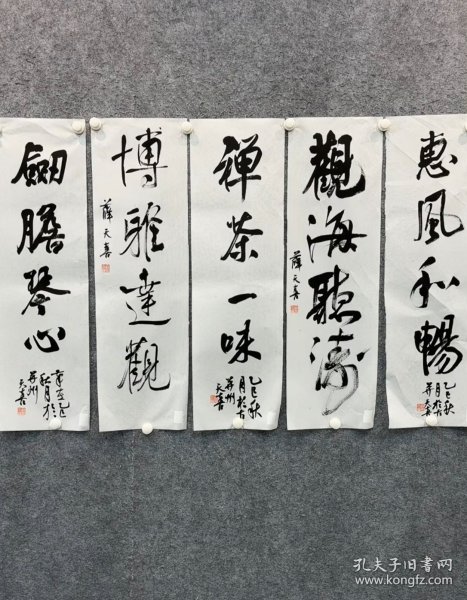 惠風和暢
乙巳秋
月於古
并天喜
觀海聽濤
薛天喜
禪茶一味
乙巳秋
月於古
并州
天喜
博雅達觀
薛天喜
劍膽琴心
乙巳
秋月於
并州
天喜
孔夫子旧书网
www.kongfz.com